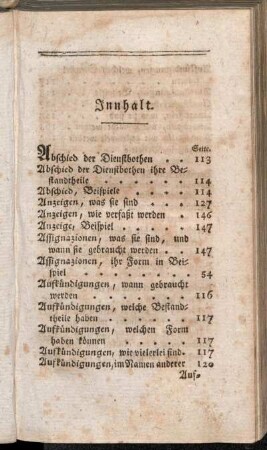 Innhalt.
Seite.
Abschied der Dienstbothen . . 113
Abschied der Dienstbothen ihre Be-
standtheile . . . . . . 114
Abschied, Beispiele . . . . 114
Anzeigen, was sie sind . . . 127
Anzeigen, wie verfaßt werden . 146
Anzeige, Beispiel . . . . 147
Assignazionen, was sie sind, und
wann sie gebraucht werden . . 147
Assignazionen, ihr Form in Bei-
spiel . . . . . . . 54
Aufkündigungen, wann gebraucht
werden . . . . . . . 116
Aufkündigungen, welche Bestand-
theile haben . . . . . 117
Aufkündigungen, welchen Form
haben können . . . . . 117
Aufkündigungen, wie vielerlei sind. 117
Aufkündigungen, im Namen anderer 120
Auf-